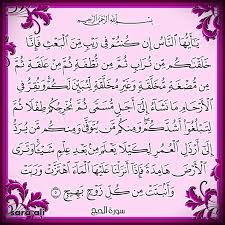 بِسْمِ اللَّهِ الرَّحْمَٰنِ الرَّحِيمِ
يَا أَيُّهَا النَّاسُ إِن كُنتُمْ فِي رَيْبٍ مِّنَ الْبَعْثِ فَإِنَّا
خَلَقْنَاكُم مِّن تُرَابٍ ثُمَّ مِن نُّطْفَةٍ ثُمَّ مِنْ عَلَقَةٍ ثُمَّ
مِن مُّضْغَةٍ مُّخَلَّقَةٍ وَغَيْرِ مُخَلَّقَةٍ لِّنُبَيِّنَ لَكُمْ وَنُقِرُّ فِي
الْأَرْحَامِ مَا نَشَاءُ إِلَىٰ أَجَلٍ مُّسَمًّى ثُمَّ نُخْرِجُكُمْ طِفْلًا ثُمَّ
لِتَبْلُغُوا أَشُدَّكُمْ وَمِنكُم مَّن يُتَوَفَّىٰ وَمِنكُم مَّن يُرَدُّ
إِلَىٰ أَرْذَلِ الْعُمُرِ لِكَيْلَا يَعْلَمَ مِن بَعْدِ عِلْمٍ شَيْئًا وَتَرَى
الْأَرْضَ هَامِدَةً فَإِذَا أَنزَلْنَا عَلَيْهَا الْمَاءَ اهْتَزَّتْ وَرَبَتْ
وَأَنبَتَتْ مِن كُلِّ زَوْجٍ بَهِيجٍ ٥
سورة الحج
sara ali